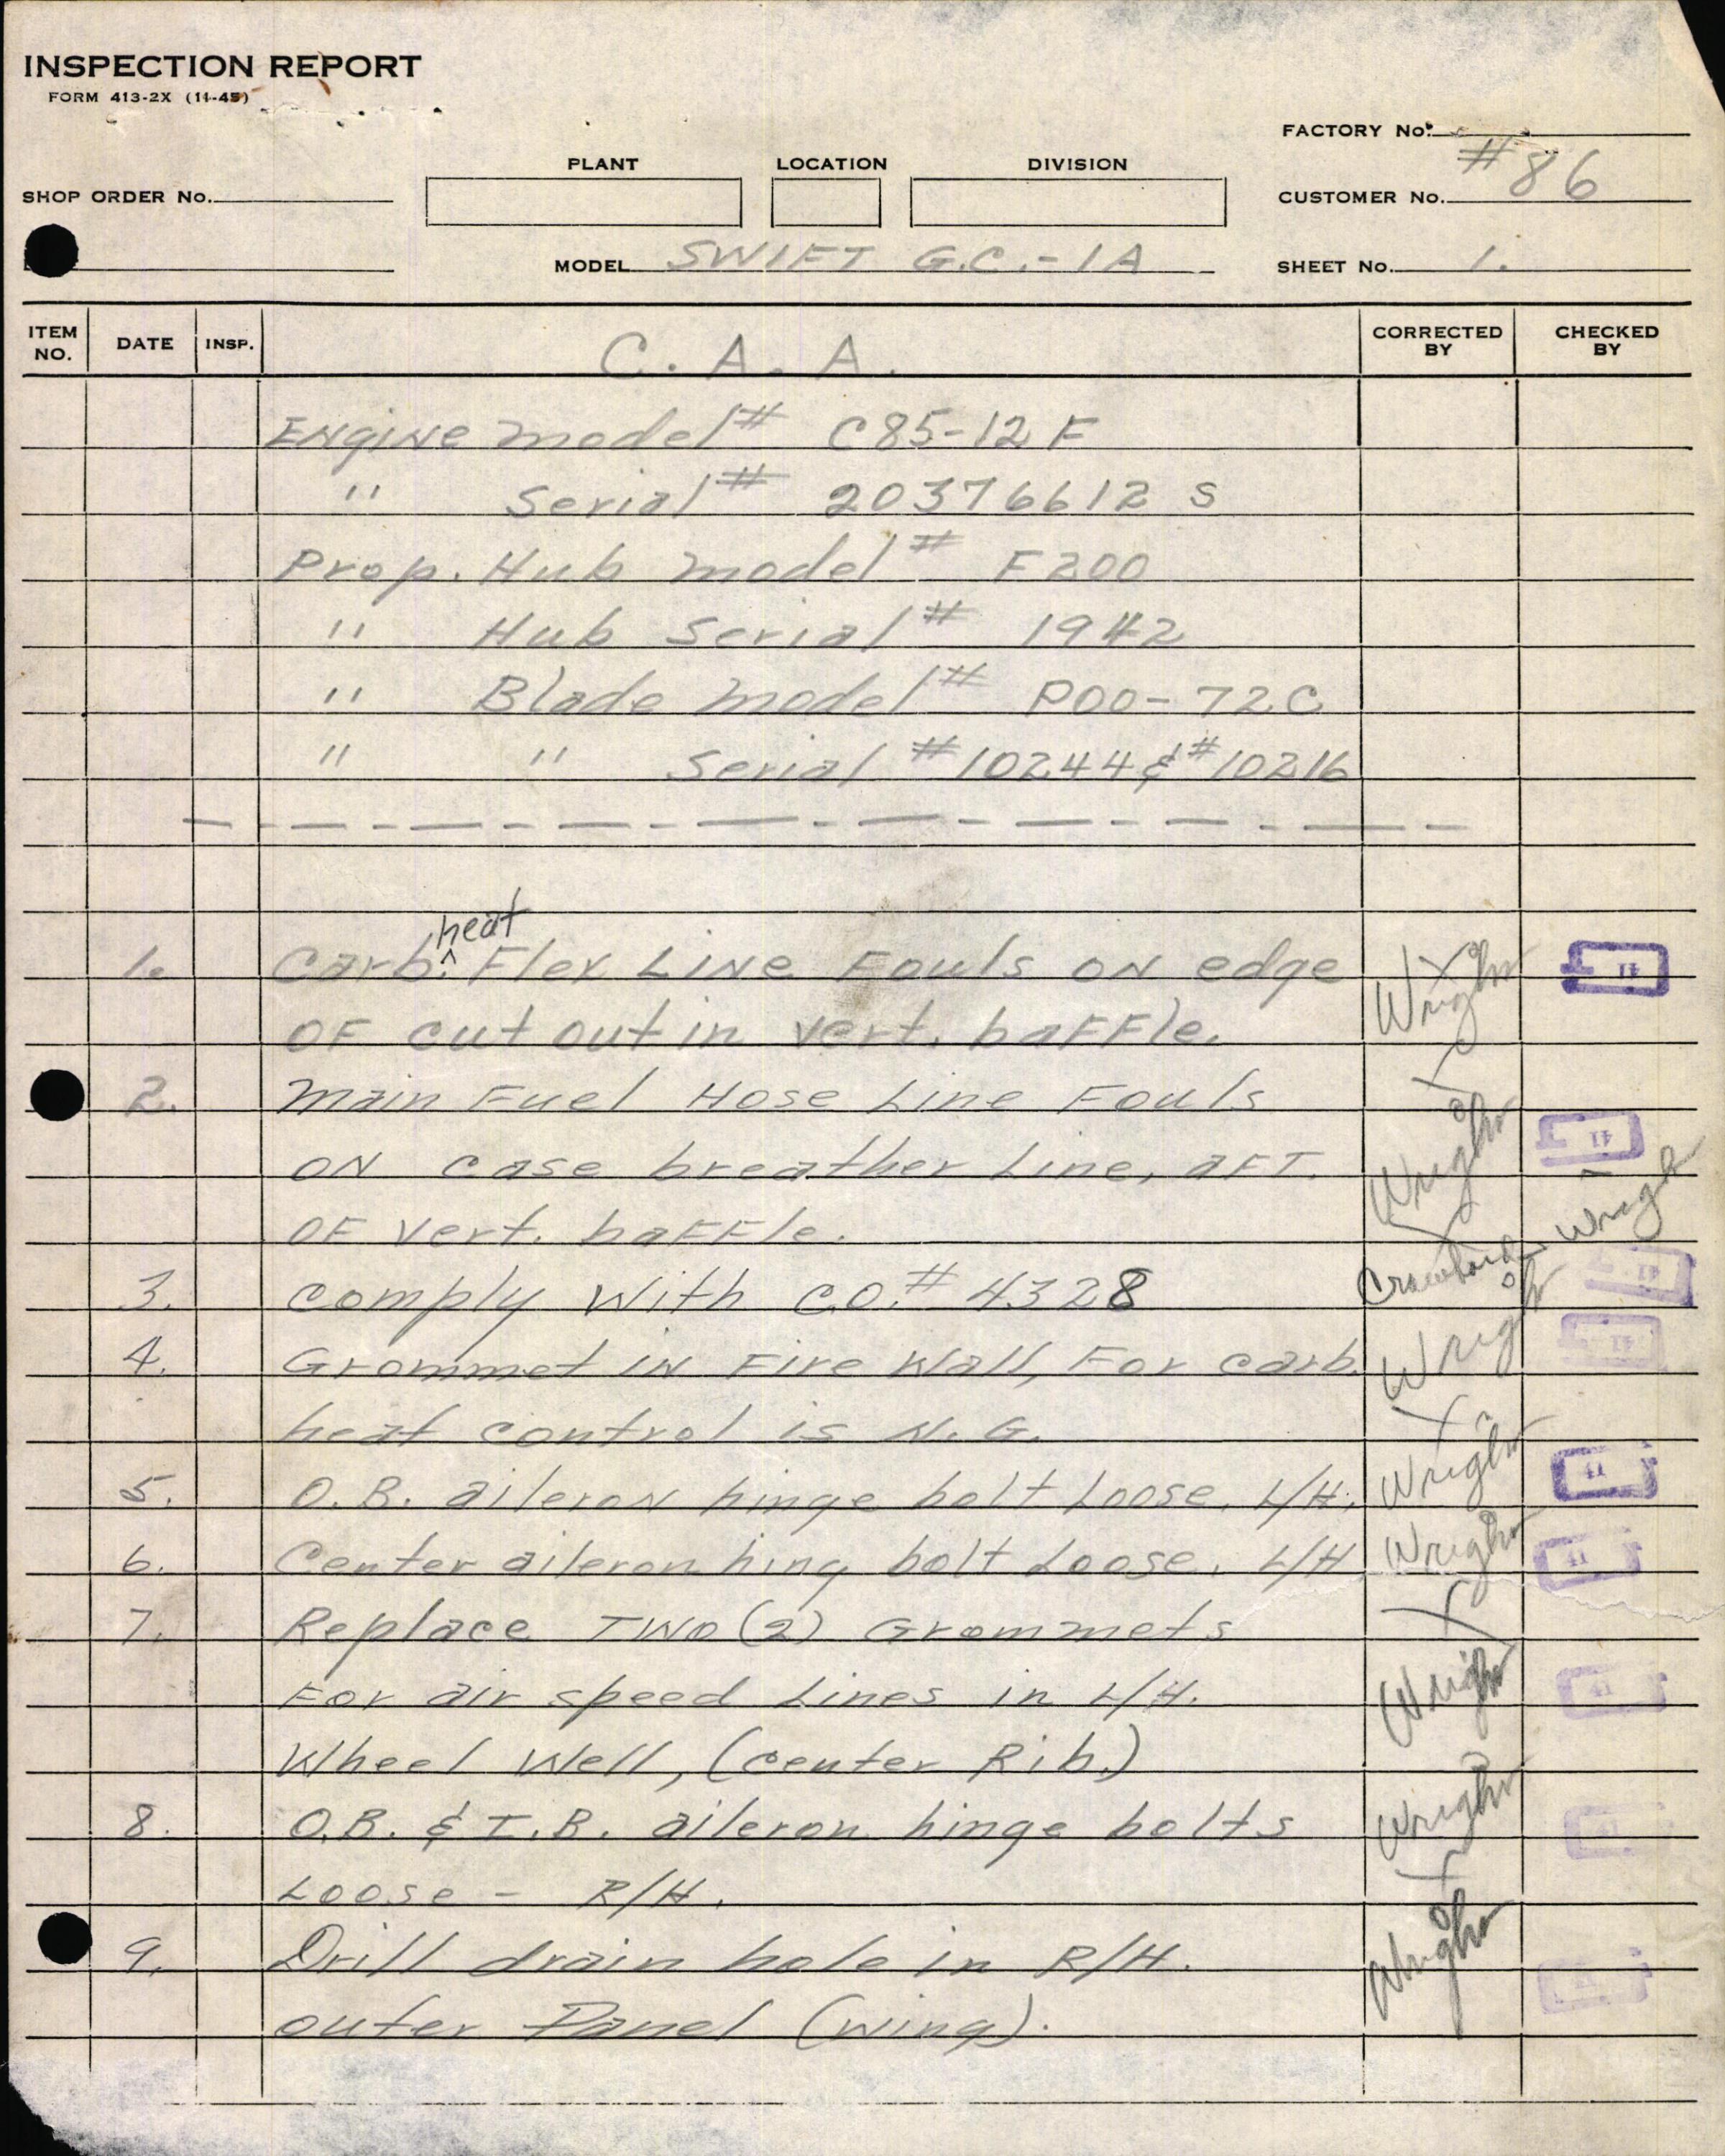 INSPECTION REPORT
FORM 413-2X (11-45)
FACTORY No.
PLANT LOCATION DIVISION
#86
SHOP ORDER No. CUSTOMER No.
MODEL SWIFT G.C.-1A SHEET No. 1.
ITEM NO. DATE INSP. C. A. A. CORRECTED BY CHECKED BY
Engine model # C85-12F
" Serial # 20376612 S
Prop. Hub model # F200
" Hub Serial # 1942
" Blade model # P00-72C
" " Serial #10244 & #10216
heat
1. Carb. ^ Flex Line Fouls on edge Wright 41
OF cut out in vert. baffle.
2. Main Fuel Hose Line Fouls
on case breather Line, aft. Wright 41
OF vert. baffle. Wright
3. Comply With C.O.# 4328 Crawford 41
4. Grommet in Fire Wall, For carb. Wright 41
heat control is N.G.
5. O.B. aileron hinge bolt Loose. L/H. Wright 41
6. Center aileron hing bolt Loose. L/H Wright 41
7. Replace Two (2) Grommets
For air speed Lines in L/H. Wright 41
Wheel Well, (center Rib.)
8. O.B. & I.B. aileron hinge bolts Wright 41
Loose - R/H.
9. Drill drain hole in R/H. Wright
outer Panel (wing).